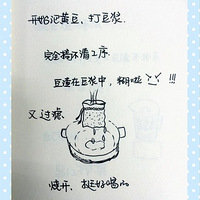 开始泡黄豆、打豆浆.
完全搞不清工序
豆渣在豆浆中，糊啦 !!!
又过滤
烧开、挺好喝的